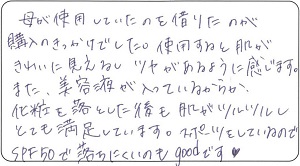 母が使用していたのを借りたのが
購入のきっかけでした。使用すると肌が
きれいに見えるし ツヤがあるように感じます。
また、美容液が入っているからか、
化粧を落とした後も肌がツルツルし
とても満足しています。スポーツをしているので
SPF50で落ちにくいのもgoodです♥